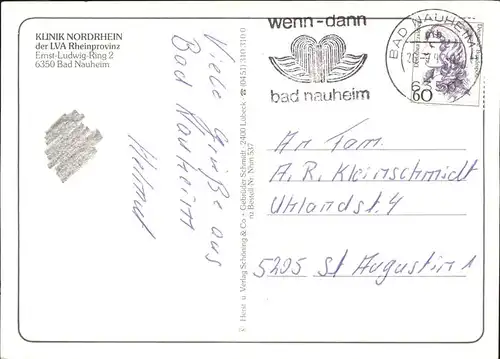 KLINIK NORDRHEIN
der LVA Rheinprovinz
Ernst-Ludwig-Ring 2
6350 Bad Nauheim
Viele Grüße aus
Bad Nauheim
Helmut
Herst. u. Verlag Schöning & Co + Gebrüder Schmidt, 2400 Lübeck
zu Bestell Nr. Nm 537
wenn-dann
bad nauheim
BAD NAUHEIM 1
60
An Fam.
A. R. Kleinschmidt
Uhlandst. 4
5205 St Augustin 1